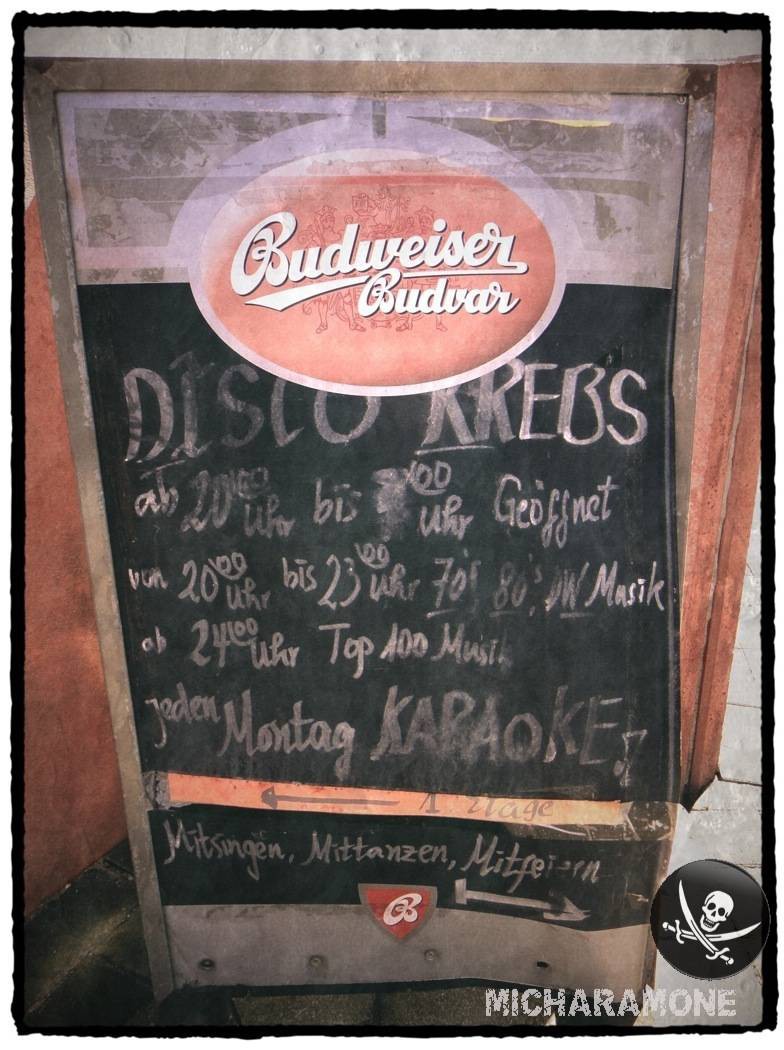 Budweiser
Budvar
DISCO KREBS
ab 20°° Uhr bis °° Uhr Geöffnet
von 20°° Uhr bis 23°° Uhr 70's 80's, Musik
ab 24°° Uhr Top 100 Musik
jeden Montag KARAOKE!
1 Etage
Mitsingen, Mittanzen, Mitfeiern
B
MICHARAMONE